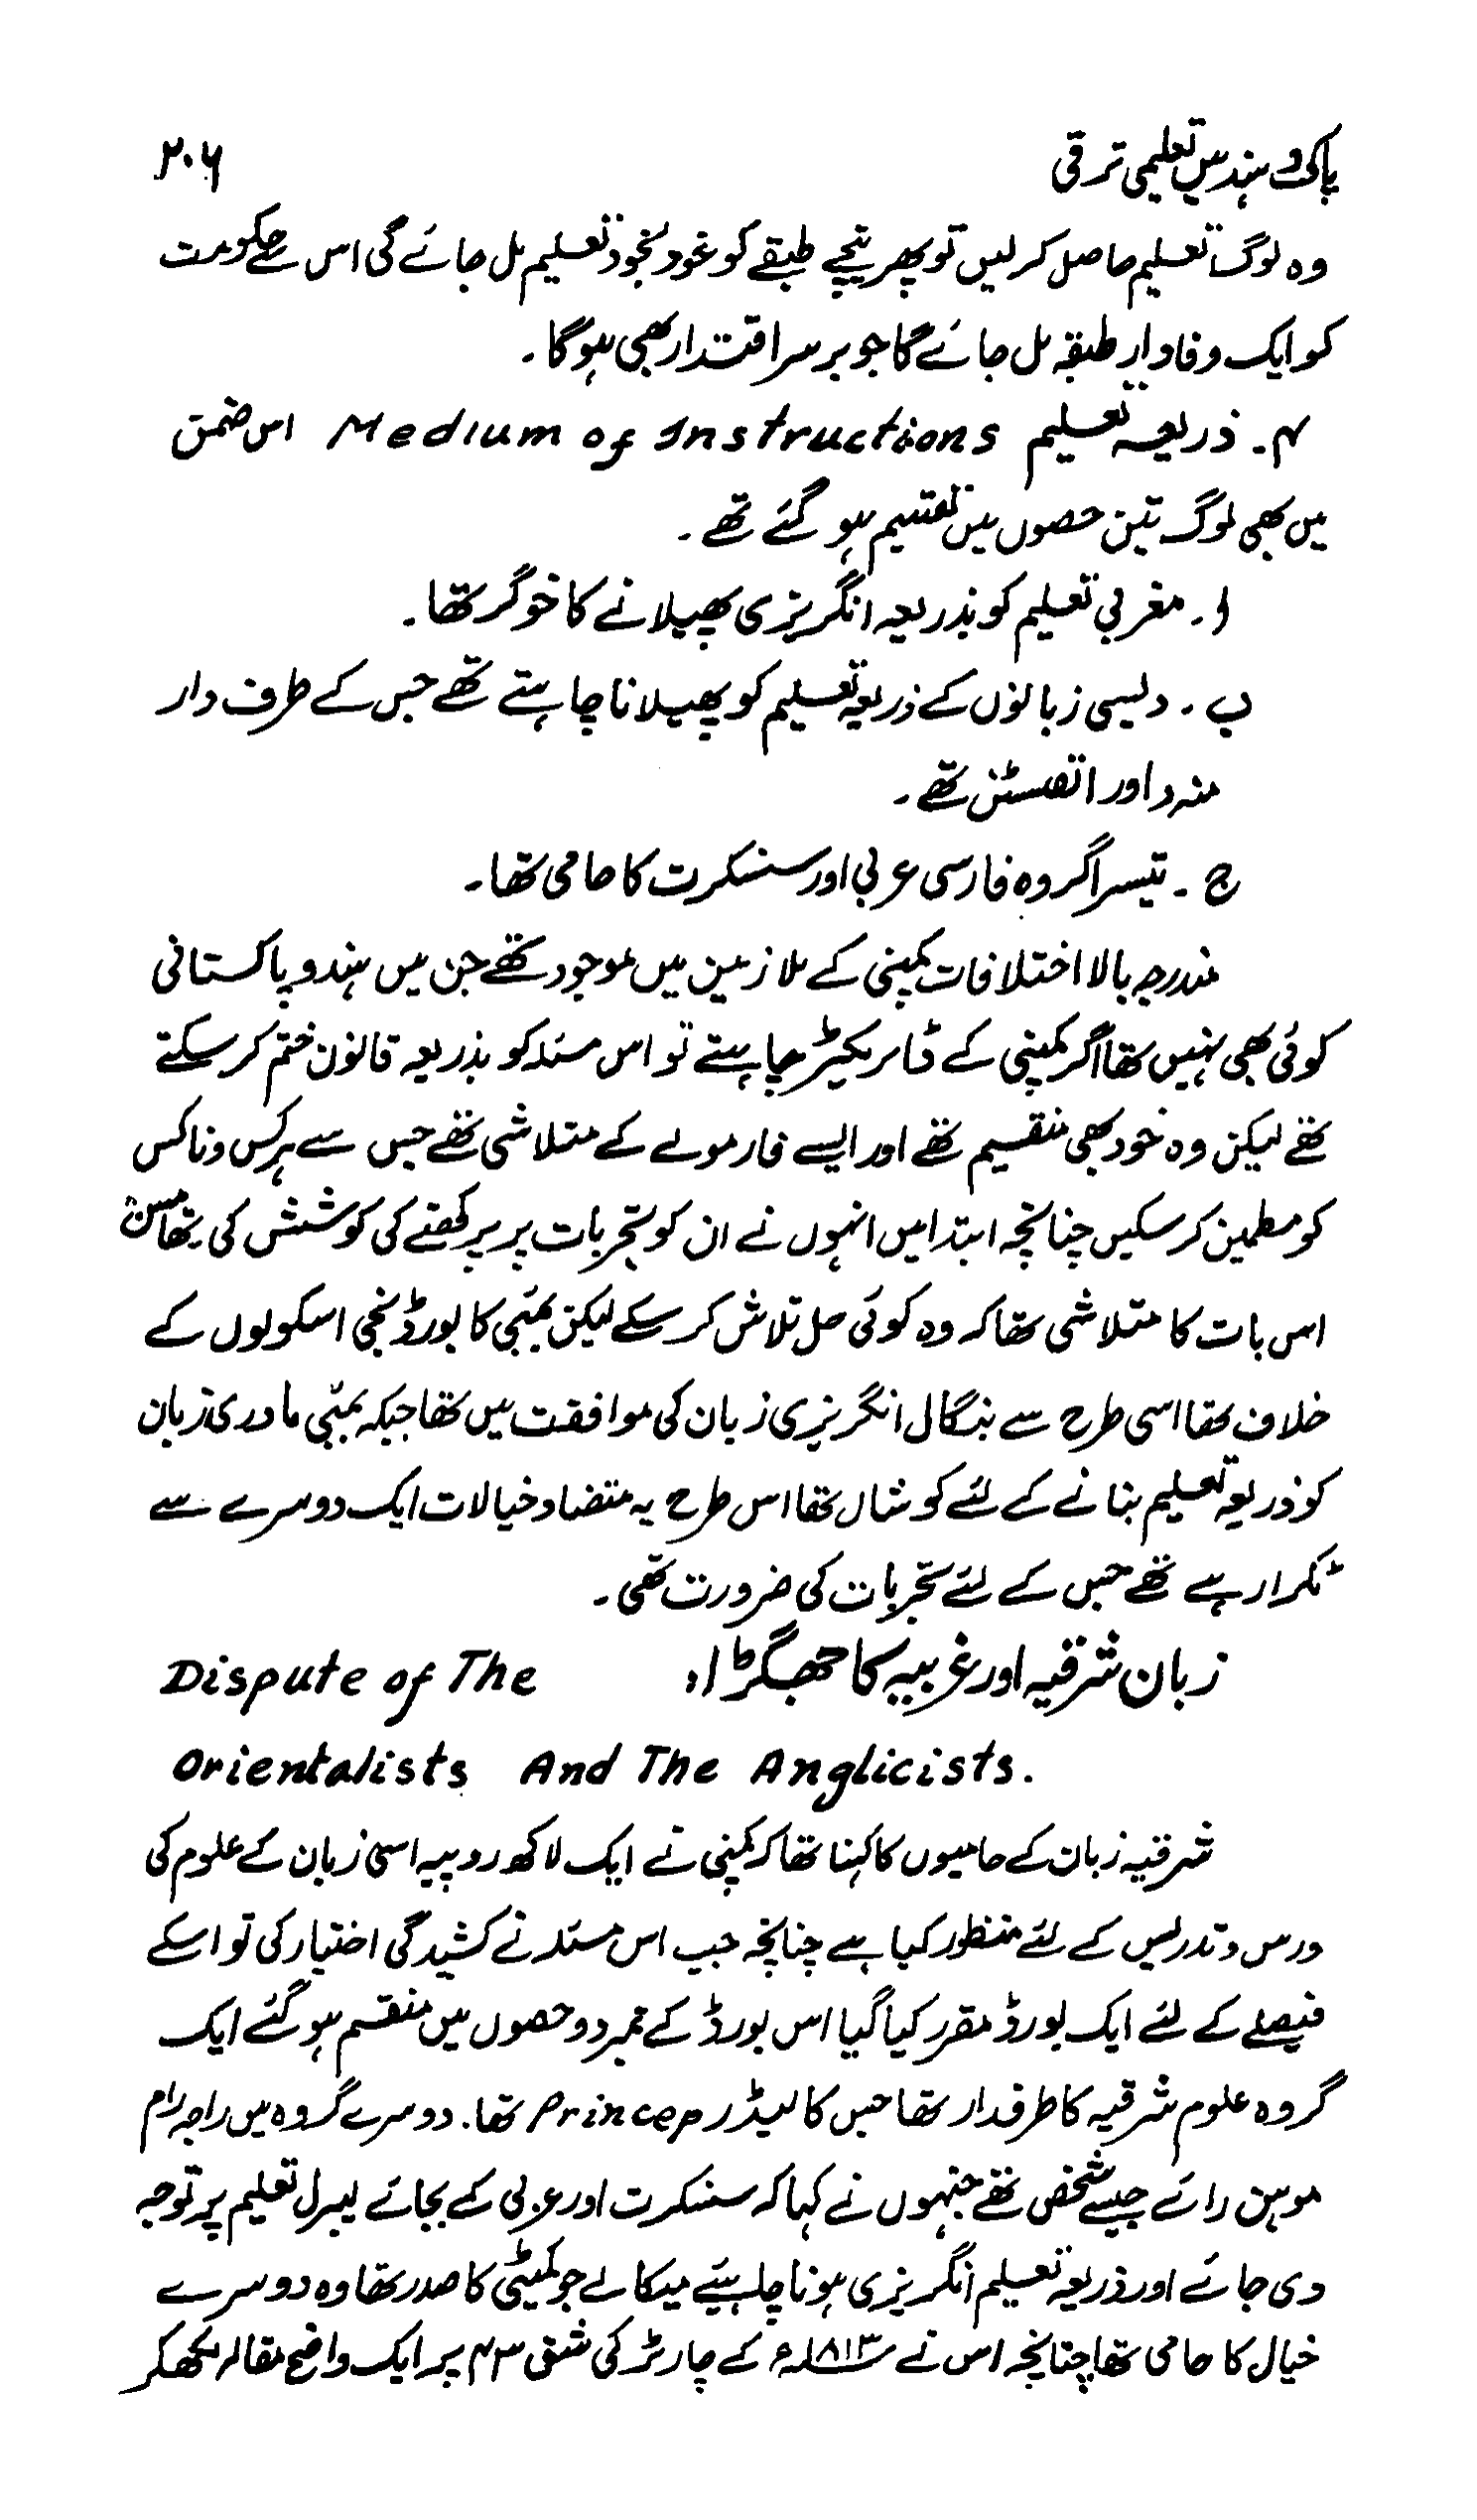 پاک و ہند میں تعلیمی ترقی ۲۰۶
وہ لوگ تعلیم حاصل کرلیں تو پھر نیچے طبقے کو خود بخود تعلیم مل جائے گی اس سے حکومت
کو ایک وفادار طبقہ مل جائے گا جو برسراقتدار بھی ہوگا۔
۴۔ ذریعہ تعلیم Medium of Instructions اس ضمن
میں بھی لوگ تین حصوں میں تقسیم ہوگئے تھے۔
ا۔ مغربی تعلیم کو بذریعہ انگریزی پھیلانے کا خوگر تھا۔
ب۔ دیسی زبانوں کے ذریعہ تعلیم کو پھیلانا چاہتے تھے جس کے طرف دار
منرو اور الفنسٹن تھے۔
ج۔ تیسرا گروہ فارسی عربی اور سنسکرت کا حامی تھا۔
مندرجہ بالا اختلافات کمپنی کے ملازمین میں موجود تھے جن میں ہندو پاکستانی
کوئی بھی نہیں تھا اگر کمپنی کے ڈائریکٹر چاہتے تو اس مسئلہ کو بذریعہ قانون ختم کرسکتے
تھے لیکن وہ خود بھی منقسم تھے اور ایسے فارمولے کے متلاشی تھے جس سے ہرکس وناکس
کو مطمین کرسکیں چنانچہ ابتدا میں انہوں نے ان کو تجربات پر پرکھنے کی کوشش کی تھامسن
اس بات کا متلاشی تھا کہ وہ کوئی حل تلاش کرسکے لیکن بمبئی کا بورڈ نجی اسکولوں کے
خلاف تھا اسی طرح سے بنگال انگریزی زبان کی موافقت میں تھا جبکہ بمبئی مادری زبان
کو ذریعہ تعلیم بنانے کے لئے کوشاں تھا اس طرح یہ متضاد خیالات ایک دوسرے سے
ٹکرا رہے تھے جس کے لئے تجربات کی ضرورت تھی۔
زبان شرقیہ اور غربیہ کا جھگڑا: Dispute of The
Orientalists And The Anglicists.
شرقیہ زبان کے حامیوں کا کہنا تھا کہ کمپنی نے ایک لاکھ روپیہ اسی زبان کے علوم کی
درس و تدریس کے لئے منظور کیا ہے چنانچہ جب اس مسئلہ نے کشیدگی اختیار کی تو اسکے
فیصلے کے لئے ایک بورڈ مقرر کیا گیا اس بورڈ کے ممبر دو حصوں میں منقسم ہوگئے ایک
گروہ علوم شرقیہ کا طرفدار تھا جس کا لیڈر Princep تھا۔ دوسرے گروہ میں راجہ رام
موہن رائے جیسے شخص تھے جنہوں نے کہا کہ سنسکرت اور عربی کے بجائے لبرل تعلیم پر توجہ
دی جائے اور ذریعہ تعلیم انگریزی ہونا چاہیئے میکالے جو کمیٹی کا صدر تھا وہ دوسرے
خیال کا حامی تھا چنانچہ اس نے ۱۸۱۳ء کے چارٹر کی شق ۴۳ پر ایک واضح مقالہ لکھکر